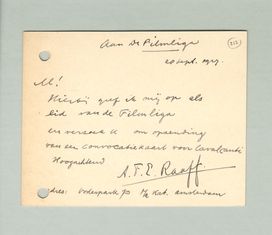 Aan De Filmliga
213
20 sept. 1927.
M!
Hierbij geef ik mij op als
lid van de Filmliga
en verzoek U om opzending
van een convocatiekaart voor Cavalcanti
Hoogachtend
A.T.E. Raaff
adres: Vodenpark 73 Amsterdam